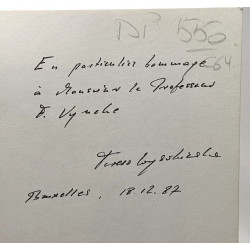 DP 550
64
En particulier hommage
à Monsieur le Professeur
F. Vyncke
Teresa Wysokińska
Bruxelles, 18.12.87